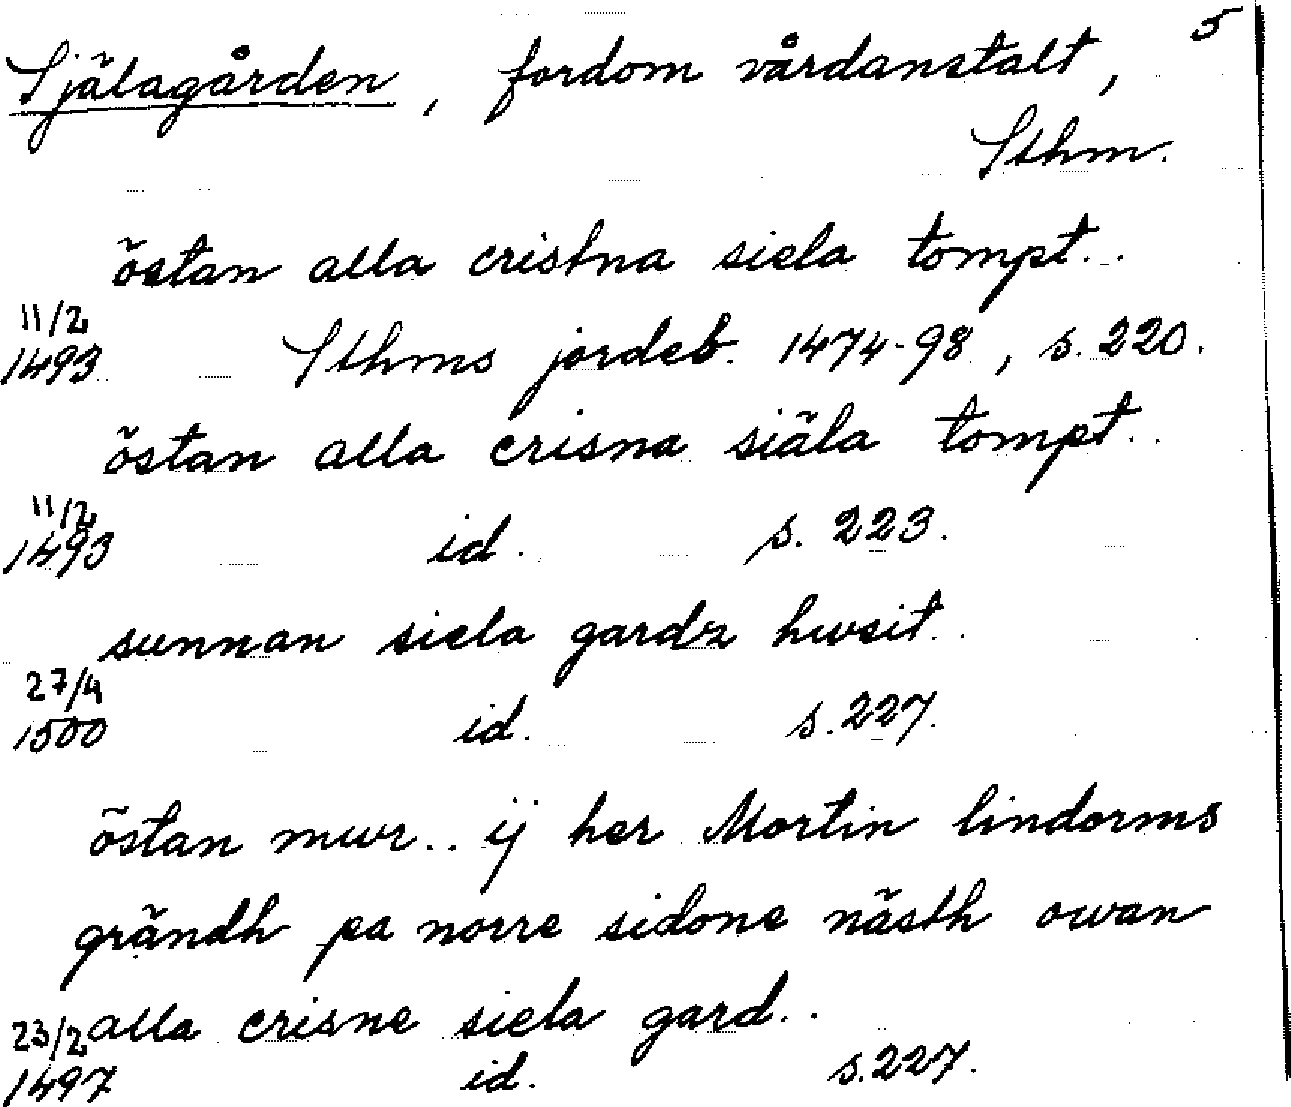 5
Själagården, fordom vårdanstalt,
Sthm.
östan alla cristna siela tompt..
11/2
1493 Sthms jordeb. 1474-98, s. 220.
östan alla crisna siäla tompt..
11/2
1493 id. s. 223.
sunnan siela gardz hwsit..
27/4
1500 id. s. 227.
östan mwr.. ij her Mortin lindorms
grändh pa norre sidone nästh owan
23/2 alla crisne siela gard..
1497 id. s. 227.